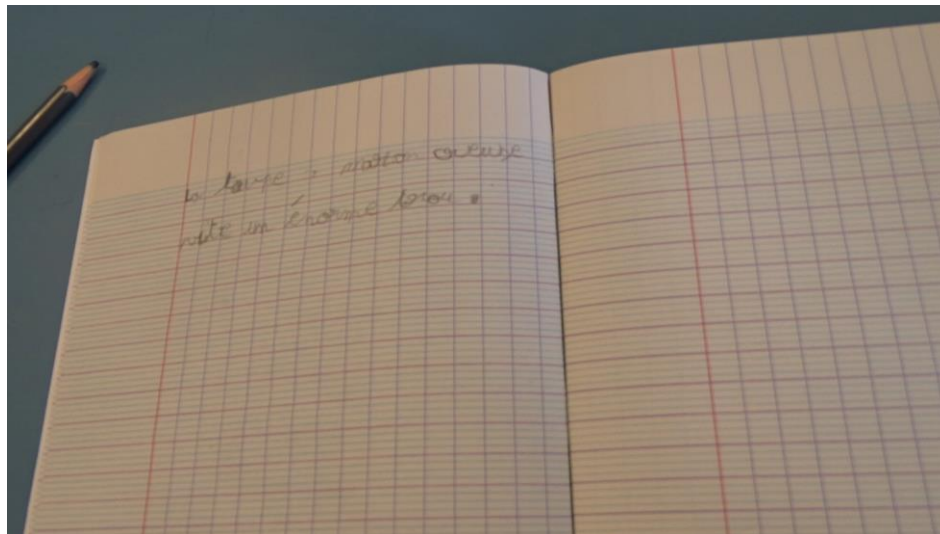 la taupe marron creuse
vite un énorme trou.